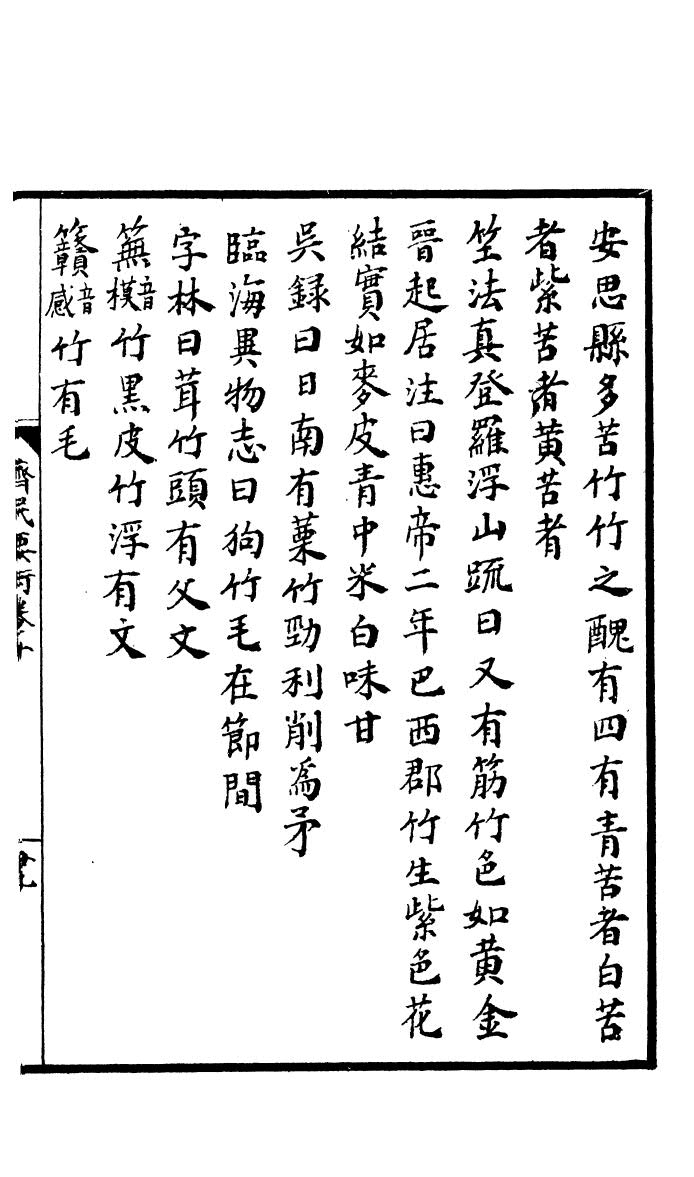 安思縣多苦竹竹之醜有四有青苦者白苦
者紫苦者黄苦者
笁法真登羅浮山䟽曰又有筋竹色如黄金
晉起居注曰惠帝二年巴西郡竹生紫色花
結實如麥皮青中米白味甘
吳録曰日南有篥竹勁利削爲矛
臨海異物志曰狗竹毛在節間
字林曰茸竹頭有父文
䉑音模竹黒皮竹浮有文
䉡音感竹有毛
齊民要術卷十